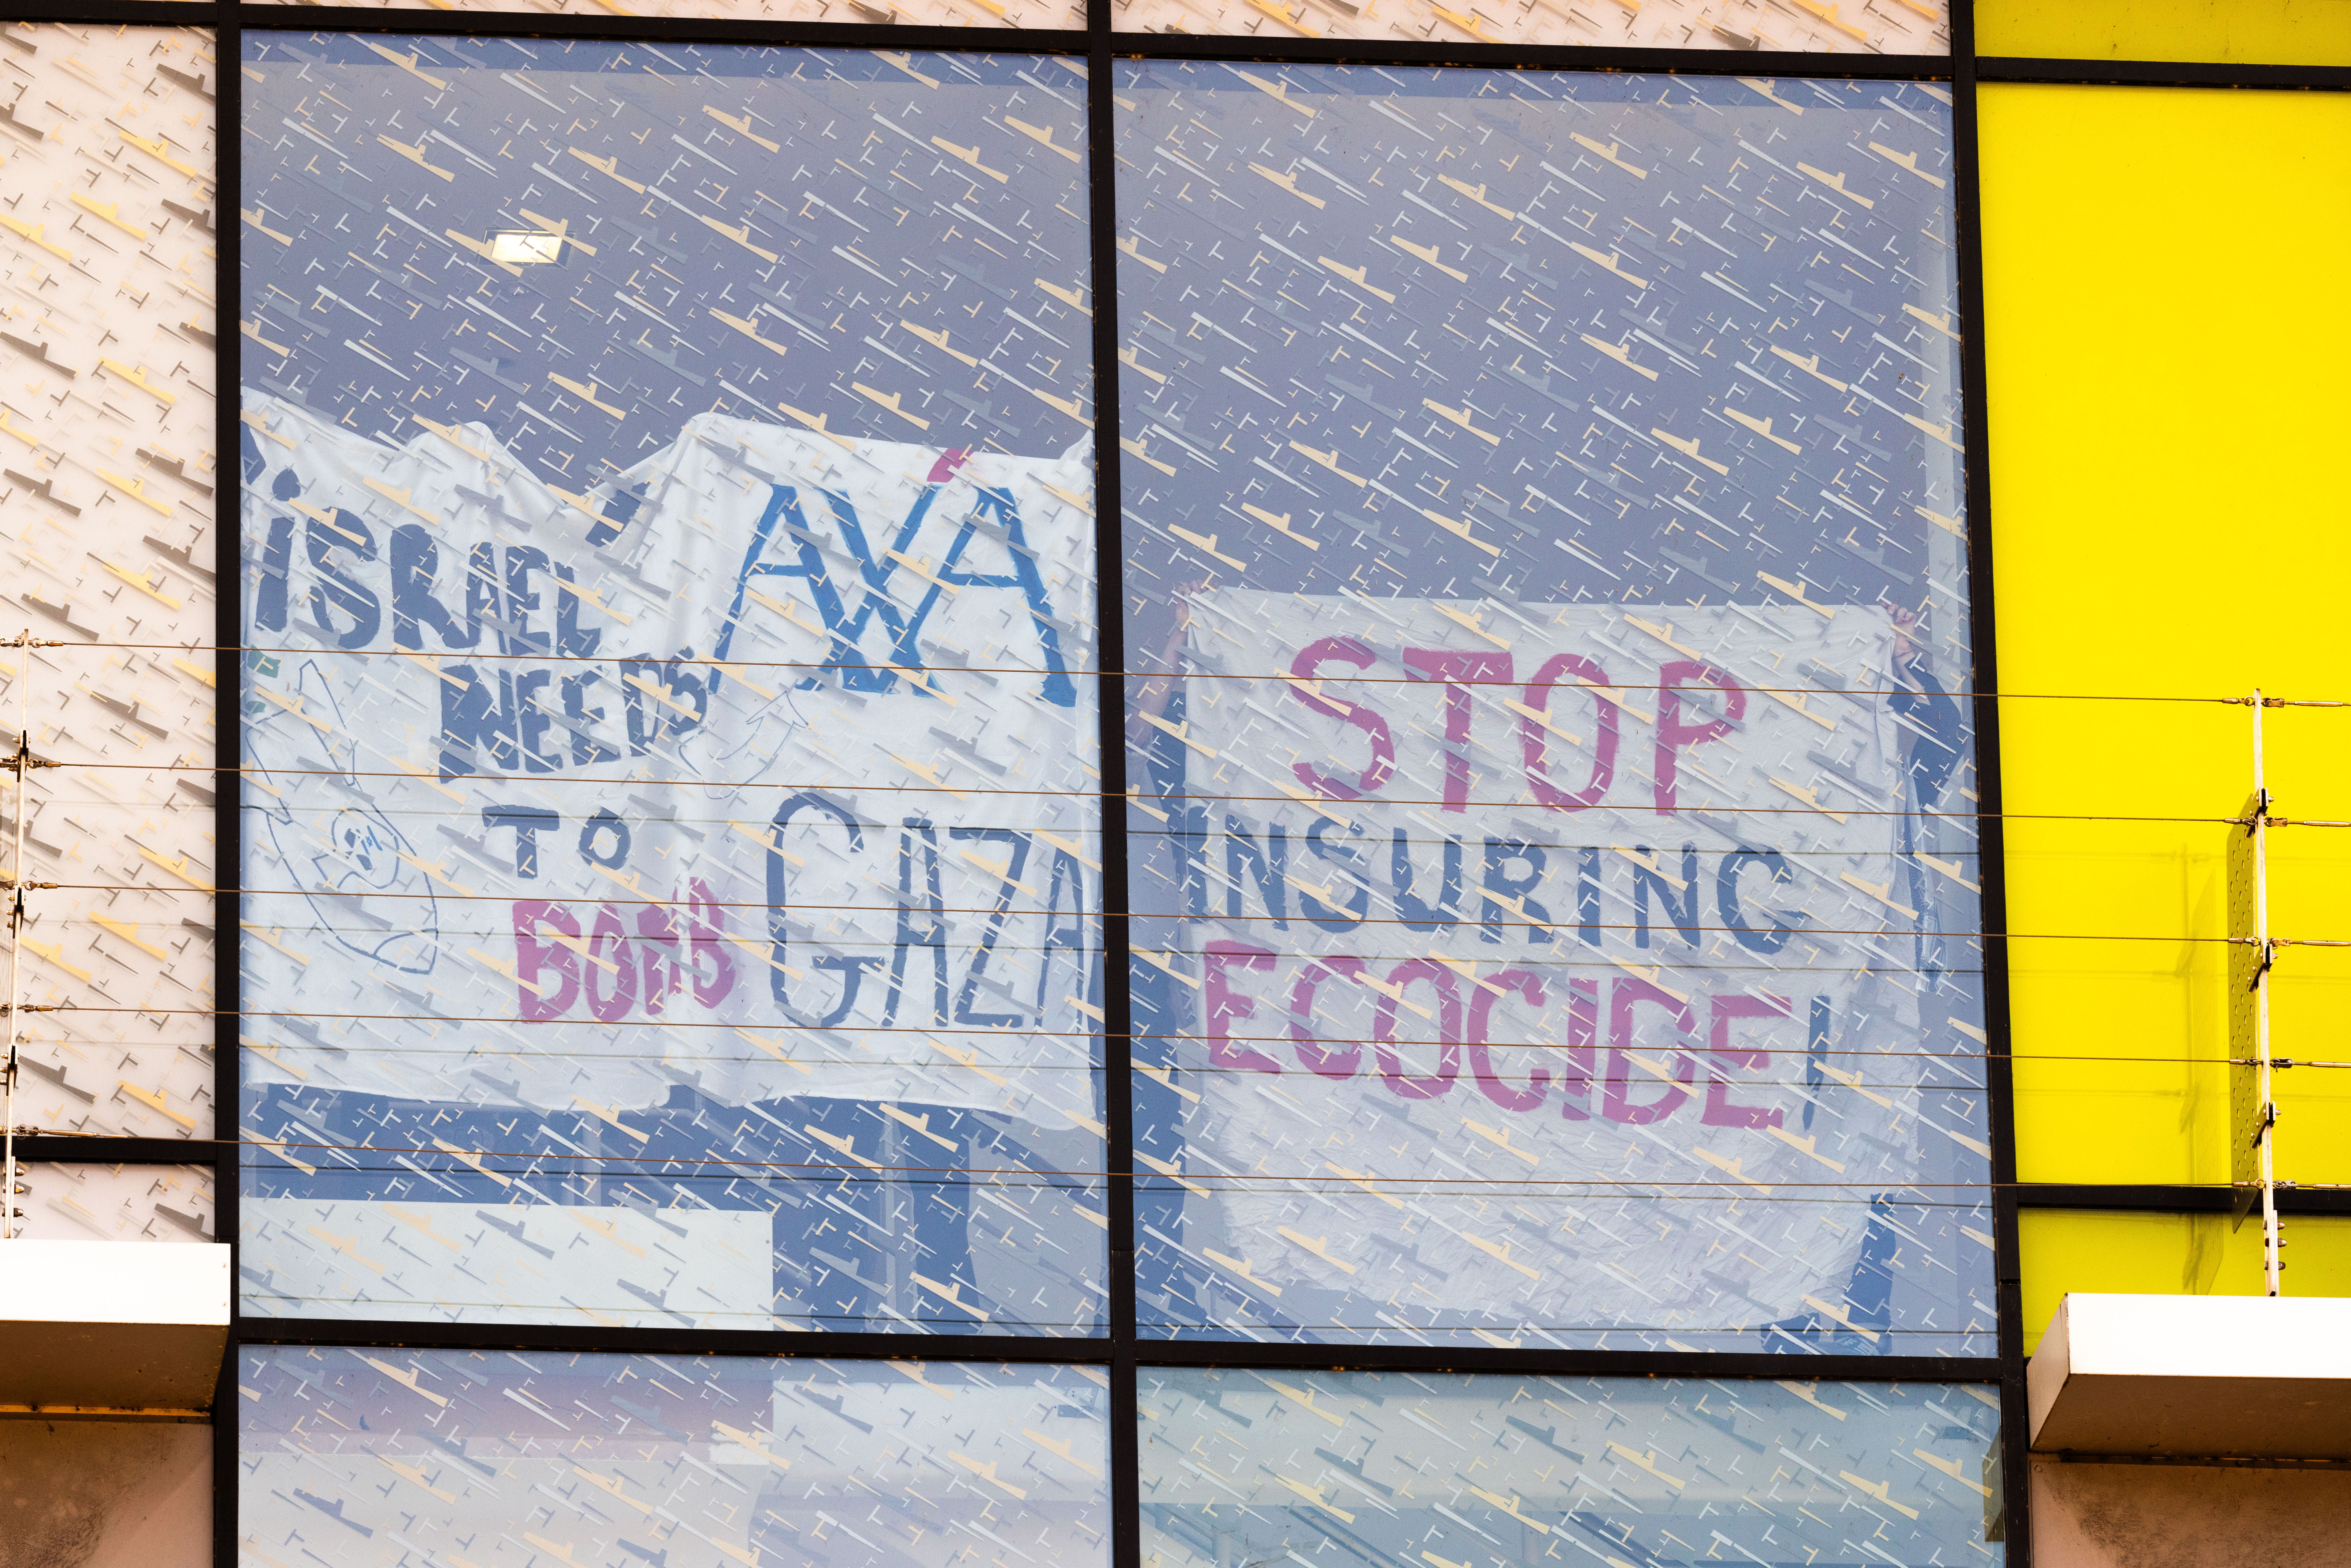 ISRAEL
NEEDS
TO
BOMB
AXA
GAZA
STOP
INSURING
ECOCIDE!